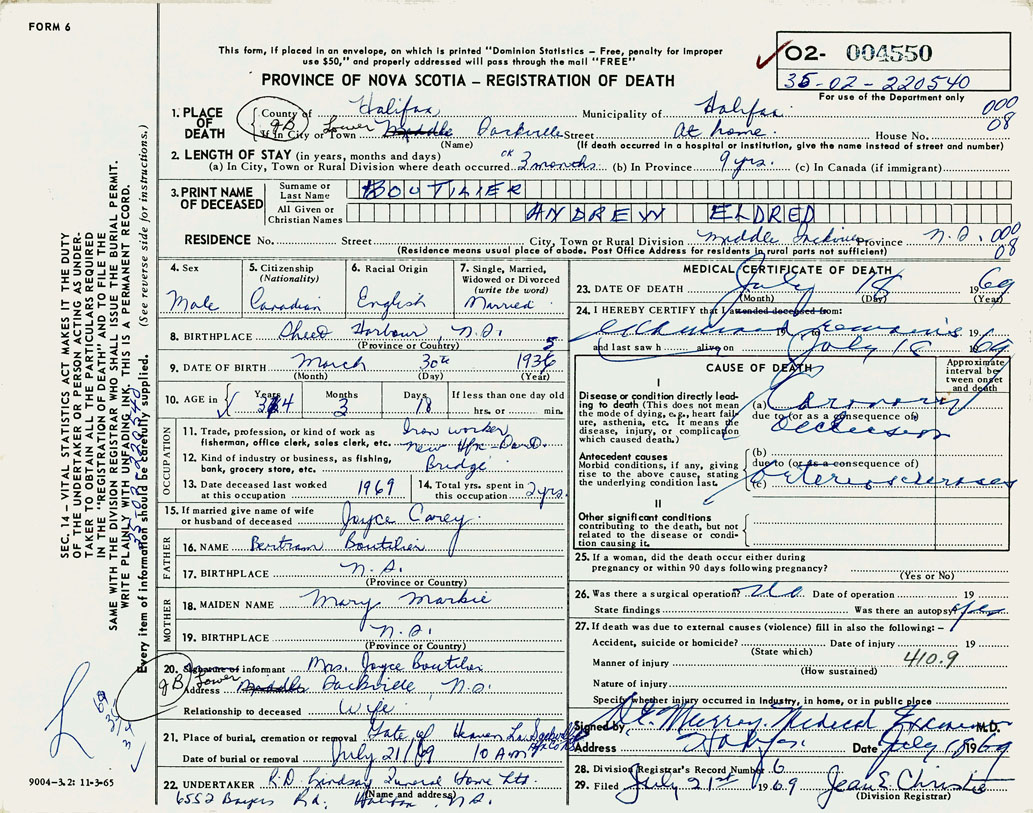 FORM 6
This form, if placed in an envelope, on which is printed "Dominion Statistics – Free, penalty for improper
use $50," and properly addressed will pass through the mail "FREE"
PROVINCE OF NOVA SCOTIA – REGISTRATION OF DEATH
02- 004550
35-02-220540
For use of the Department only
1. PLACE OF DEATH
County of Halifax Municipality of Halifax 000
JB If in City or Town Lower Middle Sackville Street At home. House No. 08
(Name) (If death occurred in a hospital or institution, give the name instead of street and number)
2. LENGTH OF STAY (in years, months and days)
(a) In City, Town or Rural Division where death occurred OK 3 months. (b) In Province 9 yrs. (c) In Canada (if immigrant)
3. PRINT NAME OF DECEASED
Surname or Last Name BOUTILIER
All Given or Christian Names ANDREW ELDRED
RESIDENCE No. Street City, Town or Rural Division Middle Sackville Province N.S. 000
(Residence means usual place of abode. Post Office Address for residents in rural parts not sufficient) 08
4. Sex
Male
5. Citizenship
(Nationality)
Canadian
6. Racial Origin
English
7. Single, Married,
Widowed or Divorced
(write the word)
Married
8. BIRTHPLACE Sheet Harbour, N.S.
(Province or Country)
9. DATE OF BIRTH March 30th 1935
(Month) (Day) (Year)
10. AGE in Years 34 Months 3 Days 18 If less than one day old
hrs. or min.
OCCUPATION
11. Trade, profession, or kind of work as
fisherman, office clerk, sales clerk, etc. Iron worker
12. Kind of industry or business, as fishing,
bank, grocery store, etc. New Hfx-Dart. Bridge
13. Date deceased last worked
at this occupation 1969
14. Total yrs. spent in
this occupation 2 yrs.
15. If married give name of wife
or husband of deceased Joyce Carey
FATHER
16. NAME Bertram Boutilier
17. BIRTHPLACE N.S.
(Province or Country)
MOTHER
18. MAIDEN NAME Mary Markie
19. BIRTHPLACE N.S.
(Province or Country)
20. Signature of informant Mrs. Joyce Boutilier
JB Address Lower Middle Sackville, N.S.
Relationship to deceased Wife
21. Place of burial, cremation or removal Gate of Heaven Lr. Sackville Hfx Co NS
Date of burial or removal July 21/69 10 AM
22. UNDERTAKER R.D. Lindsay Funeral Home Ltd.
(Name and address)
6552 Bayers Rd. Halifax, N.S.
MEDICAL CERTIFICATE OF DEATH
23. DATE OF DEATH July 18 1969
(Month) (Day) (Year)
24. I HEREBY CERTIFY that I attended deceased from:
Examined remains 19 to 19
and last saw h alive on July 18 1969
CAUSE OF DEATH
Approximate
interval be-
tween onset
and death
I
Disease or condition directly lead-
ing to death (This does not mean
the mode of dying, e.g., heart fail-
ure, asthenia, etc. It means the
disease, injury, or complication
which caused death.)
(a) Coronary
due to (or as a consequence of)
Occlusion
Antecedent causes
Morbid conditions, if any, giving
rise to the above cause, stating
the underlying condition last.
(b)
due to (or as a consequence of)
(c) Arteriosclerosis
II
Other significant conditions
contributing to the death, but not
related to the disease or condi-
tion causing it.
25. If a woman, did the death occur either during
pregnancy or within 90 days following pregnancy?
(Yes or No)
26. Was there a surgical operation? No Date of operation 19
State findings Was there an autopsy? Yes
27. If death was due to external causes (violence) fill in also the following: –
Accident, suicide or homicide? Date of injury 19
(State which)
Manner of injury 410.9
(How sustained)
Nature of injury
Specify whether injury occurred in Industry, in home, or in public place
Signed by Murray, Medical Examiner M.D.
Address Halifax Date July 18 1969
28. Division Registrar's Record Number 6
29. Filed July 21st 1969 Jean E. Christie
(Division Registrar)
SEC. 14 – VITAL STATISTICS ACT MAKES IT THE DUTY
OF THE UNDERTAKER OR PERSON ACTING AS UNDER-
TAKER TO OBTAIN ALL THE PARTICULARS REQUIRED
IN THE "REGISTRATION OF DEATH" AND TO FILE THE
SAME WITH THE DIVISION REGISTRAR WHO SHALL ISSUE THE BURIAL PERMIT.
WRITE PLAINLY WITH UNFADING INK. THIS IS A PERMANENT RECORD.
Every item of information should be carefully supplied. (See reverse side for instructions.)
9004–3.2: 11-3-65